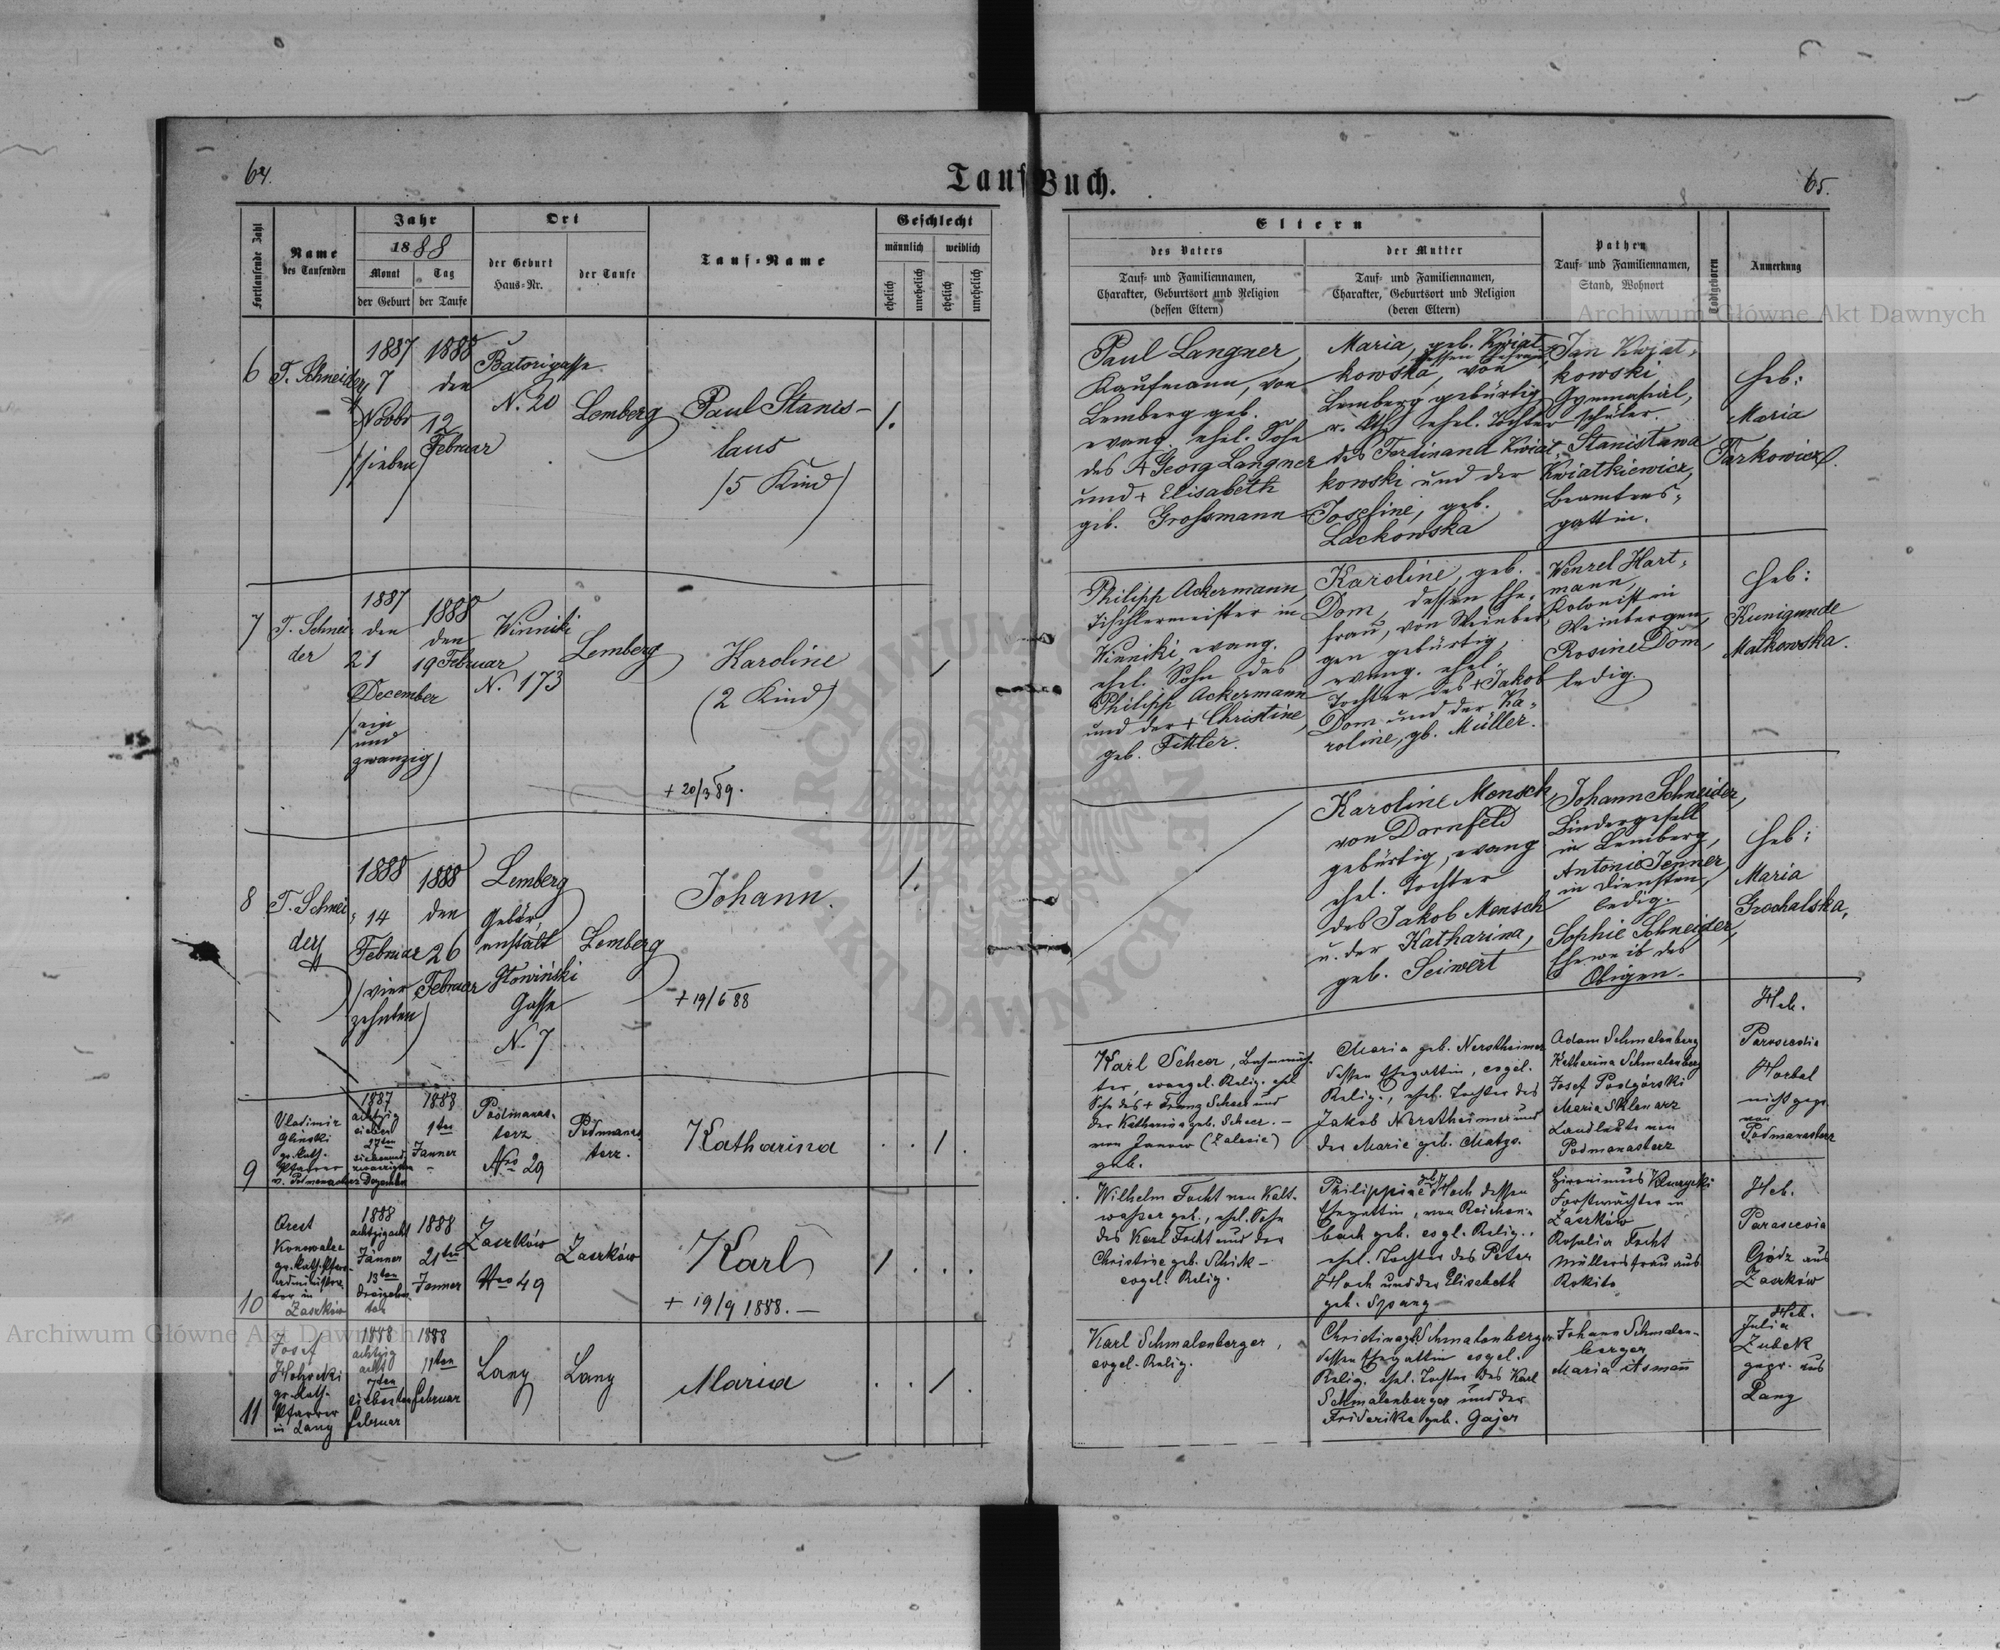 64.
Tauf Buch.
65.
Fortlaufende Zahl
Name
des Taufenden
Jahr
1888
Monat
Tag
der Geburt
der Taufe
Ort
der Geburt
Haus-Nr.
der Taufe
Tauf-Name
Geschlecht
männlich
weiblich
ehelich
unehelich
ehelich
unehelich
Eltern
des Vaters
Tauf- und Familiennamen,
Charakter, Geburtsort und Religion
(dessen Eltern)
der Mutter
Tauf- und Familiennamen,
Charakter, Geburtsort und Religion
(deren Eltern)
Pathen
Tauf- und Familiennamen,
Stand, Wohnort
Todtgeboren
Anmerkung
6
T. Schneider
1887
7
Novbr
(sieben)
1888
den
12
Februar
Batorigasse
N. 20
Lemberg
Paul Stanis-
laus
(5 Kind)
1.
Paul Langner,
Kaufmann, von
Lemberg geb.
evang. ehel. Sohn
des + Georg Langner
und + Elisabeth
geb. Grossmann
Maria, geb. Kwiat-
dessen Ehefrau,
kowska, von
Lemberg gebürtig,
r. kth., ehel. Tochter
des Ferdinand Kwiat-
kowski und der
Josefine, geb.
Lackowska
Jan Kwiat-
kowski
Gymnasial-
schüler.
Stanisława
Kwiatkiewicz,
Beamtens-
gattin.
Heb:
Maria
Tarkowicz.
7
T. Schnei
der
1887
den
21
December
(ein
und
zwanzig)
1888
den
19 Februar
Winniki
N. 173
Lemberg
Karoline
(2 Kind)
+ 20/3 89.
1
Philipp Ackermann,
Tischlermeister in
Winniki, evang.
ehel. Sohn des
Philipp Ackermann
und der + Christine,
geb. Fittler.
Karoline, geb.
Dom, dessen Ehe-
frau, von Weinber-
gen gebürtig,
evang. ehel.
Tochter des + Jakob
Dom und der Ka-
roline, gb. Müller.
Wenzel Hart-
mann,
Kolonist in
Weinbergen,
Rosine Dom,
ledig.
Heb:
Kunigunde
Malkowska.
8
T. Schnei-
der
1888
14
Februar
(vier
zehnten)
1888
den
26
Februar
Lemberg
Gebär
anstalt
Głowiński
Gasse
N. 7
Lemberg
Johann.
+ 19/6 88
1.
Karoline Mensch
von Dornfeld
gebürtig, evang
ehel. Tochter
des Jakob Mensch
u. der Katharina,
geb. Seiwert
Johann Schneider,
Bindergesell
in Lemberg,
Antonie Jenner,
in Diensten,
ledig.
Sophie Schneider,
Eheweib des
Obigen.
Heb:
Maria
Grochalska,
9
Vladimir
Glinski
gr. Kath.
Pfarrer
v. Podmanasterz
1887
achtzig
sieben
27ten
siebenund
zwanzigsten
Dezember
1888
1ten
Jänner
Podmanas-
terz
Nro 29
Podmanas
terz.
Katharina
1
Karl Scheer, Bahnwäch-
ter, evangel. Relig. ehel
Sohn des + Franz Scheer und
der Katharina geb. Scheer.
von Janow (Zalesie)
geb.
Maria geb. Nerstheimer
dessen Ehegattin, evgel.
Relig., ehel. Tochter des
Jakob Nerstheimer und
der Marie geb. Matzo.
Adam Schmalenberg
Katharina Schmalenberg
Josef Podgórski
Maria Sklenarz
Landleute von
Podmanasterz
Heb.
Paroscedia
Horbal
nicht gepr.
von
Podmanasterz
10
Orest
Konowalec
gr. Kath. Pfarr-
administra-
tor in
Zaszków
1888
achtzigacht
Jänner
13ten
dreizehn
ten
1888
21ten
Jänner
Zaszków
Nro 49
Zaszków
Karl
+ 19/9 1888.
1
Wilhelm Focht von Kalt-
wasser geb., ehel. Sohn
des Karl Focht und der
Christine geb. Schick
evgel. Relig.
Philippine geb. Hoch dessen
Ehegattin, von Reichen-
bach geb. evgl. Relig.,
ehel. Tochter des Peter
Hoch und der Elisabeth
geb. Spang
Hieronimus
Forstwächter in
Zaszków
Rosalia Focht
Müllersfrau aus
Rokito
Heb.
Parascevia
Gódz aus
Zaszków
11
Josef
gr. Kath.
Pfarrer
in Lany
1888
achtzig
acht
7ten
siebenten
Februar
1888
11ten
Februar
Lany
Lany
Maria
1
Karl Schmalenberger,
evgel. Relig.
Christina geb. Schmalenberger
dessen Ehegattin evgel.
Relig. ehel. Tochter des Karl
Schmalenberger und der
Friderike geb. Gajer
Johann Schmalen-
berger
Maria Asmann
Heb.
Julia
Zubek
gepr. aus
Lany
Archiwum Główne Akt Dawnych
Archiwum Główne Akt Dawnych